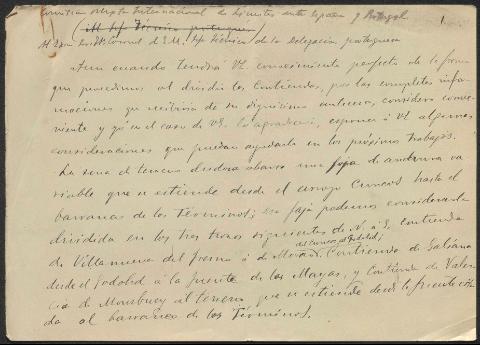 Comisión Mixta Internacional de Límites entre España y Portugal
Jefe Técnico portugues
Al Coronel de E.M. Jefe Técnico de la Delegación portuguesa
Aun cuando tendrá VE. conocimiento perfecto de la forma
que procedimos al dividir las Contiendas, por las completas infor-
maciones que recibiría de su dignísimo antecesor, considero conve-
niente y que en el caso de VE. lo agradecería, exponer á VE algunas
consideraciones que puedan ayudarle en los próximos trabajos.
La zona de terreno dudosa abarca una faja de anchura va
riable que se extiende desde el arroyo Cuncos hasta el
barranco de los Términos; esa faja podemos considerarla
dividida en los tres trozos siguientes de N. á S. Contienda
de Villanueva del Fresno ó de Mourão, del Cuncos al Godolid; Contienda de Galiana
desde el Godolid á la fuente de las Mayas, y Contienda de Valen
cia de Mombuey al terreno que se extiende desde la fuente cita
da al barranco de los Términos.